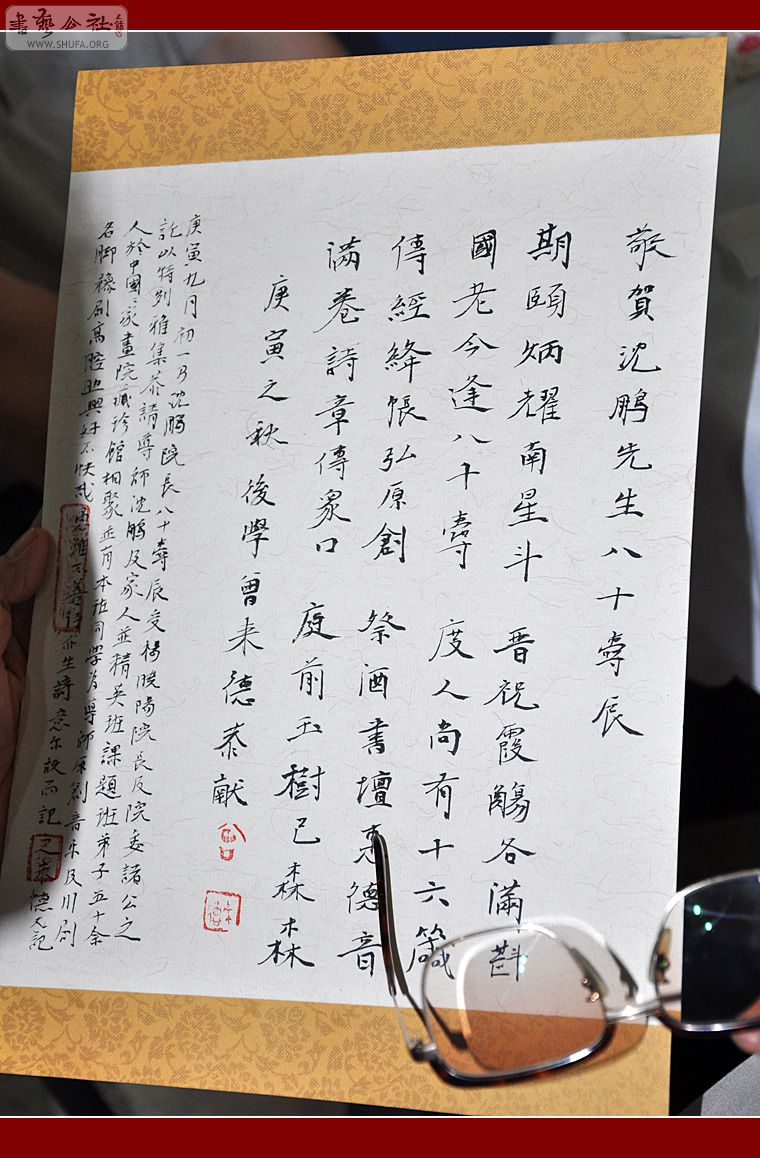 書藝公社
WWW.SHUFA.ORG
敬賀沈鵬先生八十壽辰
期頤炳耀南星斗 晋祝霞觴各滿斟
國老今逢八十壽 度人尚有十六箴
傳經絳帳弘原創 祭酒書壇惠德音
滿卷詩章傳眾口 庭前玉樹已森森
庚寅之秋 後學曾来德泰献
庚寅九月初一乃沈鵬院長八十壽辰受楊曉陽院長及院委諸公之
託以特别雅集恭請尊師沈鵬及家人並精英班課題班弟子五十余
人於中國國家畫院藏珍館相聚並有本班同學為導師原創音乐及川劇
名脚豫劇高腔助興好不快哉 亦生詩意尔設而記 来德又記